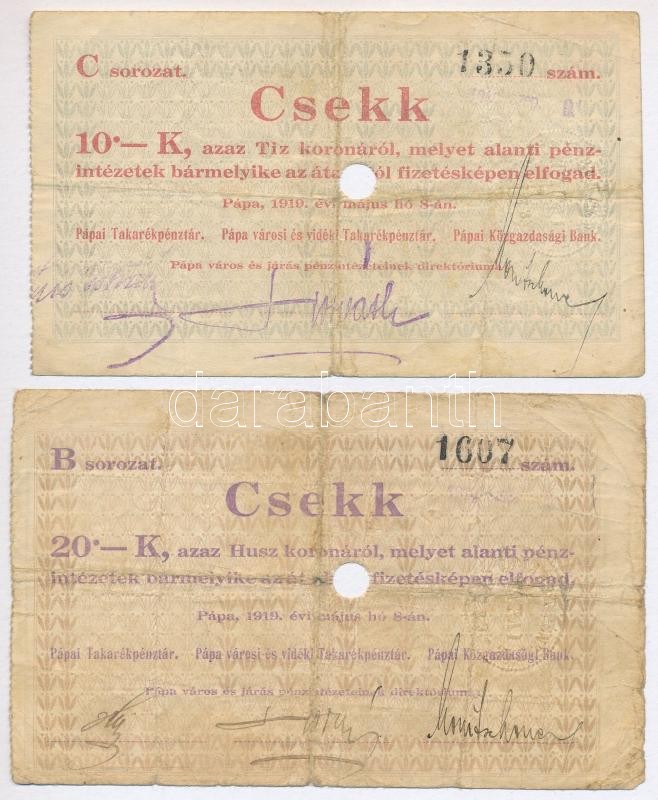 C sorozat. 1350 szám.
Csekk
10·— K, azaz Tiz koronáról, melyet alanti pénz-
intézetek bármelyike az áta ól fizetésképen elfogad.
Pápa, 1919. évi május hó 8-án.
Pápai Takarékpénztár. Pápa városi és vidéki Takarékpénztár. Pápai Közgazdasági Bank.
Pápa város és járás pénzintézeteinek direktóriuma
Horváth
darabanth
B sorozat. 1607 szám.
Csekk
20·— K, azaz Husz koronáról, melyet alanti pénz-
intézetek bármelyike az át fizetésképen elfogad.
Pápa, 1919. évi május hó 8-án.
Pápai Takarékpénztár. Pápa városi és vidéki Takarékpénztár. Pápai Közgazdasági Bank.
Pápa város és járás pénzintézeteinek direktóriuma